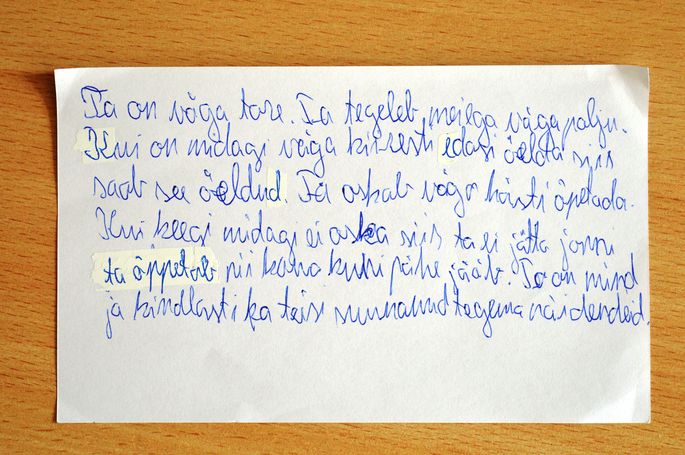 Ta on väga tore. Ta tegeleb meiega väga palju.
Kui on midagi väga kiiresti edasi öelda siis
saab see öeldud. Ta oskab väga hästi õpetada.
Kui keegi midagi ei oska siis ta ei jätta jonni
ta õppetab nii kaua kuni pähe jääb. Ta on mind
ja kindlasti ka teisi suunanud tegema näidendeid.